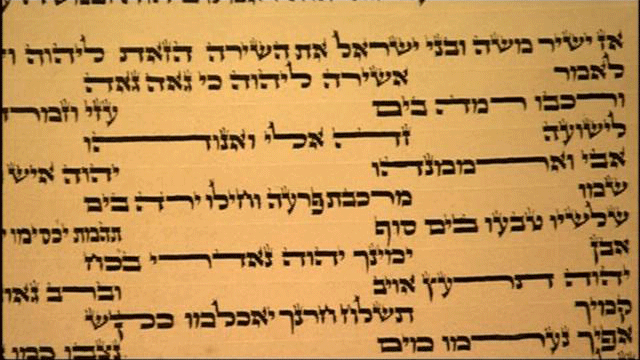 אז ישיר משה ובני ישראל את השירה הזאת ליהוה
לאמר אשירה ליהוה כי גאה גאה
ורכבו רמה בים עזי וזמר
לישועה זה אלי ואנוהו
אבי וארממנהו יהוה איש
שמו מרכבת פרעה וחילו ירה בים
שלשיו טבעו בים סוף תהמת יכסימו
אבן ימינך יהוה נאדרי בכח
יהוה תרעץ אויב וברב גאו
קמיך תשלח חרנך יאכלמו כקש
אפיך נערמו מים נצבו כמו